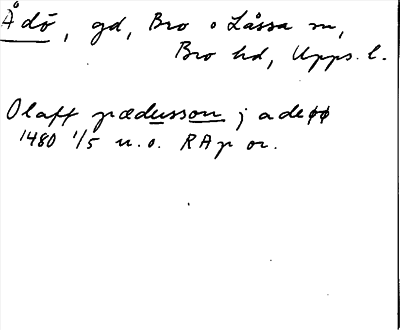 Ådö, gd, Bro o Låssa sn,
Bro hd, Upps. l.
Olaff pædersson j adeøø
1480 1/5 u.o. RAp or.